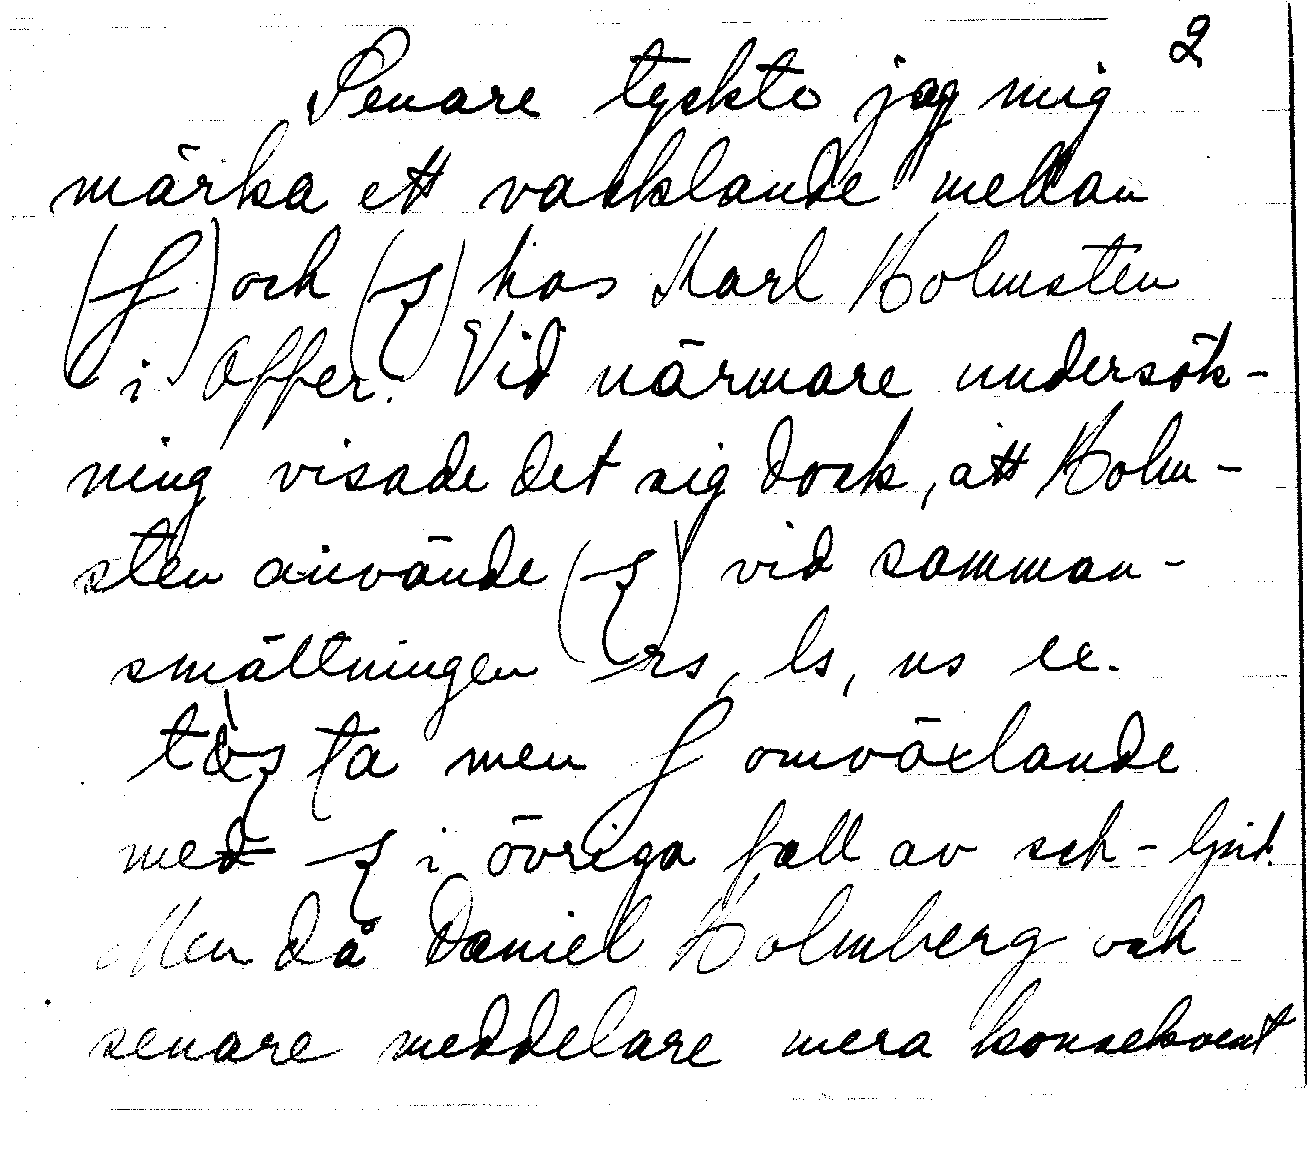 2
Senare tyckte jag mig
märka ett vacklande mellan
(ʃ) och (ʂ) hos Karl Holmsten
i Offer. Vid närmare undersök-
ning visade det sig dock, att Holm-
sten använde (ʂ) vid samman-
smältningen rs, ls, ns ex.
tòʂta men ʃ omväxlande
med ʂ i övriga fall av sch-ljud.
Men då Daniel Holmberg och
senare meddelare mera konsekvent